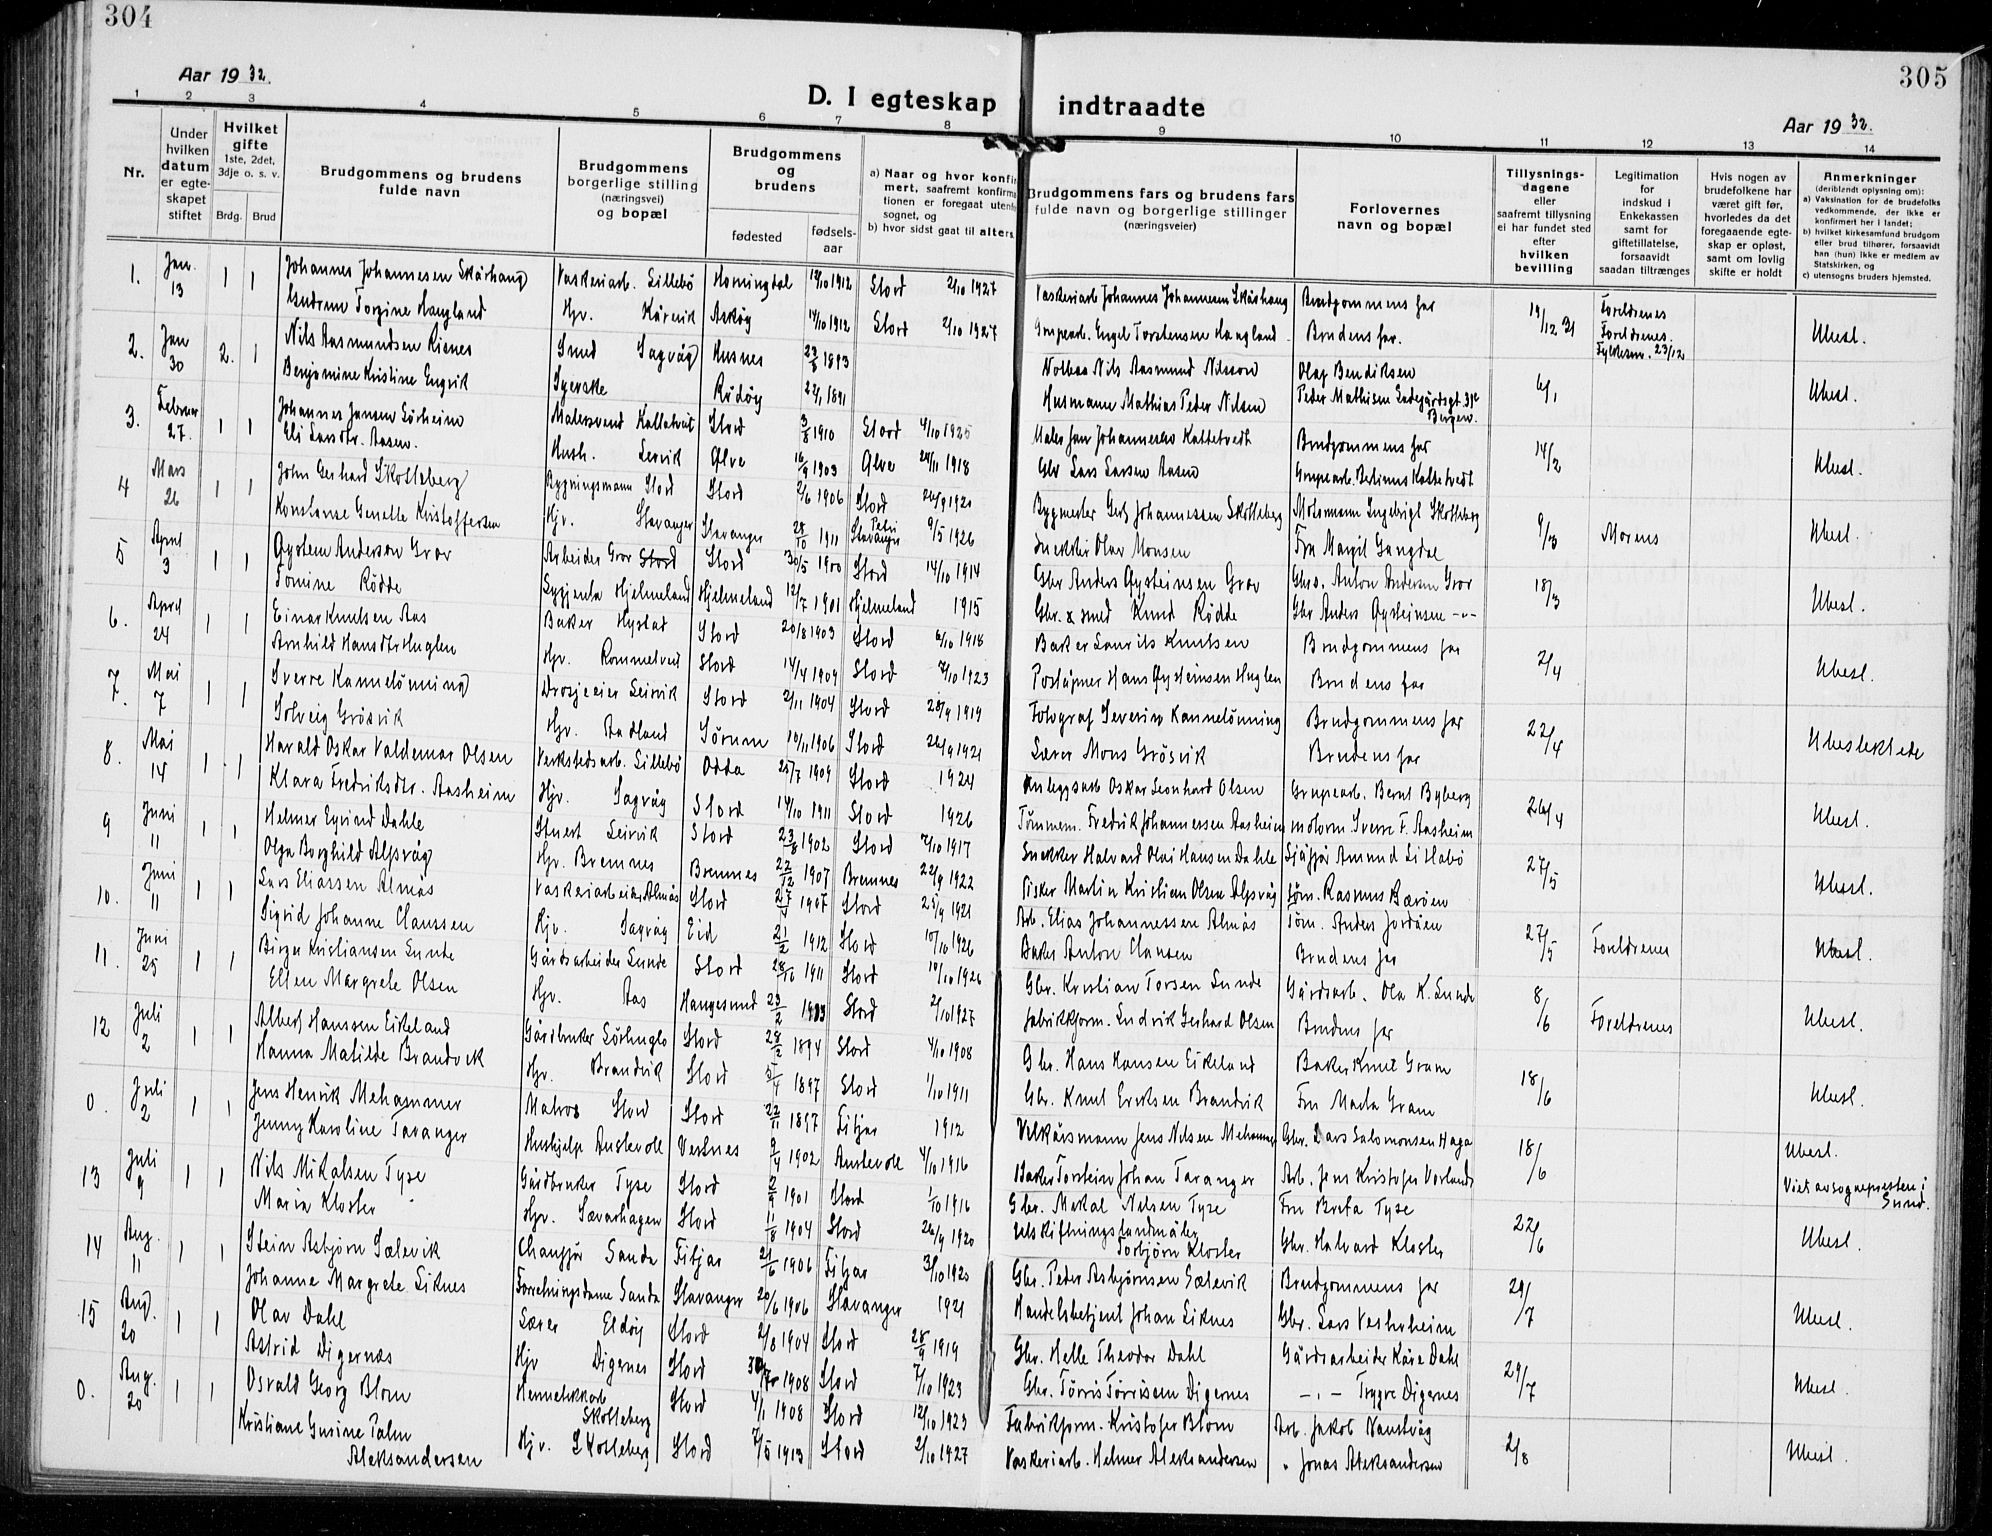 304
305
Aar 19 32.
D. I egteskap indtraadte
Aar 19 32.
1 2 3 4 5 6 7 8 9 10 11 12 13 14
Nr.
Under hvilken datum er egteskapet stiftet
Hvilket gifte 1ste, 2det, 3dje o. s. v.
Brdg. Brud
Brudgommens og brudens fulde navn
Brudgommens borgerlige stilling (næringsvei) og bopæl
Brudgommens og brudens
fødested
fødselsaar
a) Naar og hvor konfirmert, saafremt konfirmationen er foregaat utenfor sognet, og
b) hvor sidst gaat til alters
Brudgommens fars og brudens fars fulde navn og borgerlige stillinger (næringsveier)
Forlovernes navn og bopæl
Tillysningsdagene eller saafremt tillysning ei har fundet sted efter hvilken bevilling
Legitimation for indskud i Enkekassen samt for giftetillatelse, forsaavidt saadan tiltrænges
Hvis nogen av brudefolkene har været gift før, hvorledes da det foregaaende egteskap er opløst, samt om lovlig skifte er holdt
Anmerkninger
(deriblandt oplysning om):
a) Vaksination for de brudefolks vedkommende, der ikke er konfirmert her i landet;
b) hvilket kirkesamfund brudgom eller brud tilhører, forsaavidt han (hun) ikke er medlem av Statskirken, og
c) utensogns bruders hjemsted.
1. Jan. 13 1 1 Johannes Johannesen Skårhaug Vaskeriarb. Lillebö Horningdal 12/10 1912 Stord 2/10 1927 Vaskeriarb Johannes Johannesen Skårhaug Brudgommens far 19/12 31 Foreldrenes
Gudrun Torgine Haugland Hjv. Kårevik Askøy 14/10 1912 Stord 2/10 1927 Grupearb. Engel Torstensen Haugland Brudens far. Foreldrenes. Fylkesm. 23/12 Ubesl.
2. Jan 30 2. 1 Nils Aasmundsen Risnes Smed Sagvåg Husnes 23/8 1893 Notbas Nils Aasmund Nilsson Olaf Bendiksen 6/1
Benjamine Kristine Engvik Syerske Rødøy 22/1 1891 Husmann Mathias Peder Nilsen Peder Mathisen Ladegårdsgt. 31c Bergen. Ubesl.
3. Februar 27. 1 1 Johannes Jansen Sörheim Malersvend Kattatveit Stord 3/8 1910 Stord 4/10 1925 Maler Jan Johannesen Kattetvedt Brudgommens far 14/2
Eli Larsdtr. Aasen. Hush. Leirvik Ølve 16/9 1903 Ølve 24/11 1918 Gbr Lars Larsen Aasen Grupearb. Berlinus Kattetvedt Ubesl.
4 Mars 26 1 1 John Gerhard Skotteberg Bygningsmann Stord Stord 2/6 1906 Stord 26/9 1920 Bygmester Gert Johannessen Skotteberg Motormann Ingebrigt Skotteberg 9/3 Morens
Konstanse Genette Kristoffersen Hjv. Stavanger Stavanger 28/10 1911 Petri Stavanger 9/5 1926 Snekker Olav Monsen Fru Margit Gangdal Ubesl.
5 April 3 1 1 Øystein Andersen Grov Arbeider Grov Stord Stord 30/5 1900 Stord 14/10 1914 Gbr Anders Øysteinsen Grov Gbrs. Anton Andersen Grov 18/3
Tomine Rödde Sygjenta Hjelmeland Hjelmeland 12/7 1901 Hjelmeland 1915 Gbr. & smed Knud Rödde Gbr Anders Øysteinsen -"- Ubesl.
6. April 24 1 1 Einar Knutsen Aas Baker Hystad Stord 20/8 1903 Stord 6/10 1918 Baker Laurits Knutsen Brudgommens far 2/4
Arnhild Hansdtr Huglen Hjv. Rommetveit Stord 14/4 1909 Stord 7/10 1923 Poståpner Hans Øysteinsen Huglen Brudens far Ubesl.
7. Mai 7 1 1 Sverre Kannelönning Drosjeeier Leirvik Stord 2/11 1904 Stord 28/9 1919 Fotograf Severin Kannelönning Brudgommens far 22/4
Solveig Grösvik Hjv. Aadland Sørum 10/11 1906 Stord 26/9 1921 Lærer Mons Grösvik Brudens far Ubeslektede
8. Mai 14 1 1 Harald Oskar Valdemar Olsen Verkstedsarb. Lillebö Odda 25/7 1909 Stord 1924 Anleggsarb Oskar Leonhard Olsen Grupearb. Bernt Byberg 26/4
Klara Fredriksdtr. Aasheim Hjv. Sagvåg Stord 14/10 1911 Stord 1926 Tømmerm. Fredrik Johannessen Aasheim motorm Sverre F. Aasheim Ubesl.
9 Juni 11 1 1 Helmer Eyvind Dahle Stuert Leirvik Stord 23/8 1902 Stord 7/10 1917 Snekker Halvard Olai Hansen Dahle Sjåfør Amund Littabö 27/5
Olga Borghild Alpsvåg Hjv. Bremnes Bremnes 22/12 1907 Bremnes 22/9 1922 Fisker Martin Kristian Olsen Alpsvåg Tøm. Rasmus Bærøen Ubesl.
10. Juni 11 1 1 Lars Eliassen Almås Vaskeriarbeider Almås Stord 27/5 1907 Stord 25/9 1921 Arb. Elias Johannessen Almås Töm. Anders Jordåen 27/5
Sigrid Johanne Clausen Hjv. Sagvåg Eid 21/2 1912 Stord 10/10 1926 Baker Anton Clausen Brudens far Foreldrenes Ubesl.
11. Juni 25 1 1 Birger Kristiansen Lunde Gårdsarbeider Lunde Stord 28/6 1911 Stord 10/10 1926 Gbr. Kristian Torsen Lunde Gårdsarb. Ola K. Lunde 8/6
Ellen Margrete Olsen Hjv. Aas Haugesund 23/2 1913 Stord 2/10 1927 Fabrikkform. Ludvik Gerhard Olsen Brudens far Foreldrenes Ubesl.
12 Juli 2 1 1 Albert Hanssen Eikeland Gårdbruker Sörhuglo Stord 28/2 1894 Stord 4/10 1908 Gbr. Hans Hansen Eikeland Baker Knut Gram 18/6
Hanna Matilde Brandvik Hjv. Brandvik Stord 5/4 1897 Stord 1/10 1911 Gbr. Knut Eriksen Brandvik Fru Marta Gram Ubesl.
0. Juli 2 1 1 Jens Henrik Mehammer Matros Stord Stord 22/11 1897 Fitjar 1912 Vilkårsmann Jens Nilsen Mehammer Gbr. Lars Salomonsen Haga 18/6 Ubesl.
Jenny Karoline Taranger Hushjelp Austevoll Vestnes 9/4 1902 Austevoll 4/10 1916 Baker Torstein Johan Taranger Arb. Jens Kristofer Vorland Viet av sognepresten i Sund.
13 Juli 9 1 1 Nils Mikalsen Tyse Gårdbruker Tyse Stord 2/9 1901 Stord 1/10 1916 Gbr. Mikal Nilsen Tyse Fru Breta Tyse 22/6
Maria Kloster Hjv. Sævarhagen Stord 11/8 1904 Stord 26/9 1920 Utskiftningslandmåler Torbjörn Kloster Gbr. Halvard Kloster Ubesl.
14 Aug. 11 1 1 Stein Asbjørn Sælevik Chauffør Sandø Fitjar 21/6 1906 Fitjar 3/10 1920 Gbr. Peder Asbjørnsen Sælevik Brudgommens far 29/7
Johanne Margrete Liknes Forretningsdame Sandø Stavanger 20/6 1906 Stavanger 1921 Handelsbetjent Johan Liknes Gbr. Lars Vestrheim Ubesl.
15 Aug. 20 1 1 Olav Dahl Lærer Eldøy Stord 2/8 1904 Stord 28/9 1919 Gbr. Helle Theodor Dahl Gårdsarbeider Kåre Dahl 29/7
Astrid Digernæs Hjv Digernes Stord 1908 Stord 7/10 1923 Gbr. Tørris Tørrissen Digernes -"- Trygve Digernes Ubesl.
0. Aug. 20 1 1 Osvald Georg Blom Hermetikkarb Skotteberg Stord 4/1 1908 Stord 12/10 1923 Fabrikform. Kristofer Blom Arb. Jakob Naustvåg 2/8
Kristiane Gurine Palm Aleksandersen Hjv. Skotteberg Stord 7/5 1913 Stord 2/10 1927 Vaskeriarb. Helmer Aleksandersen " Jonas Aleksandersen Ubesl.